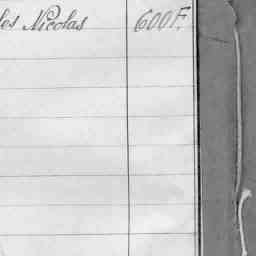 les Nicolas 600 F.